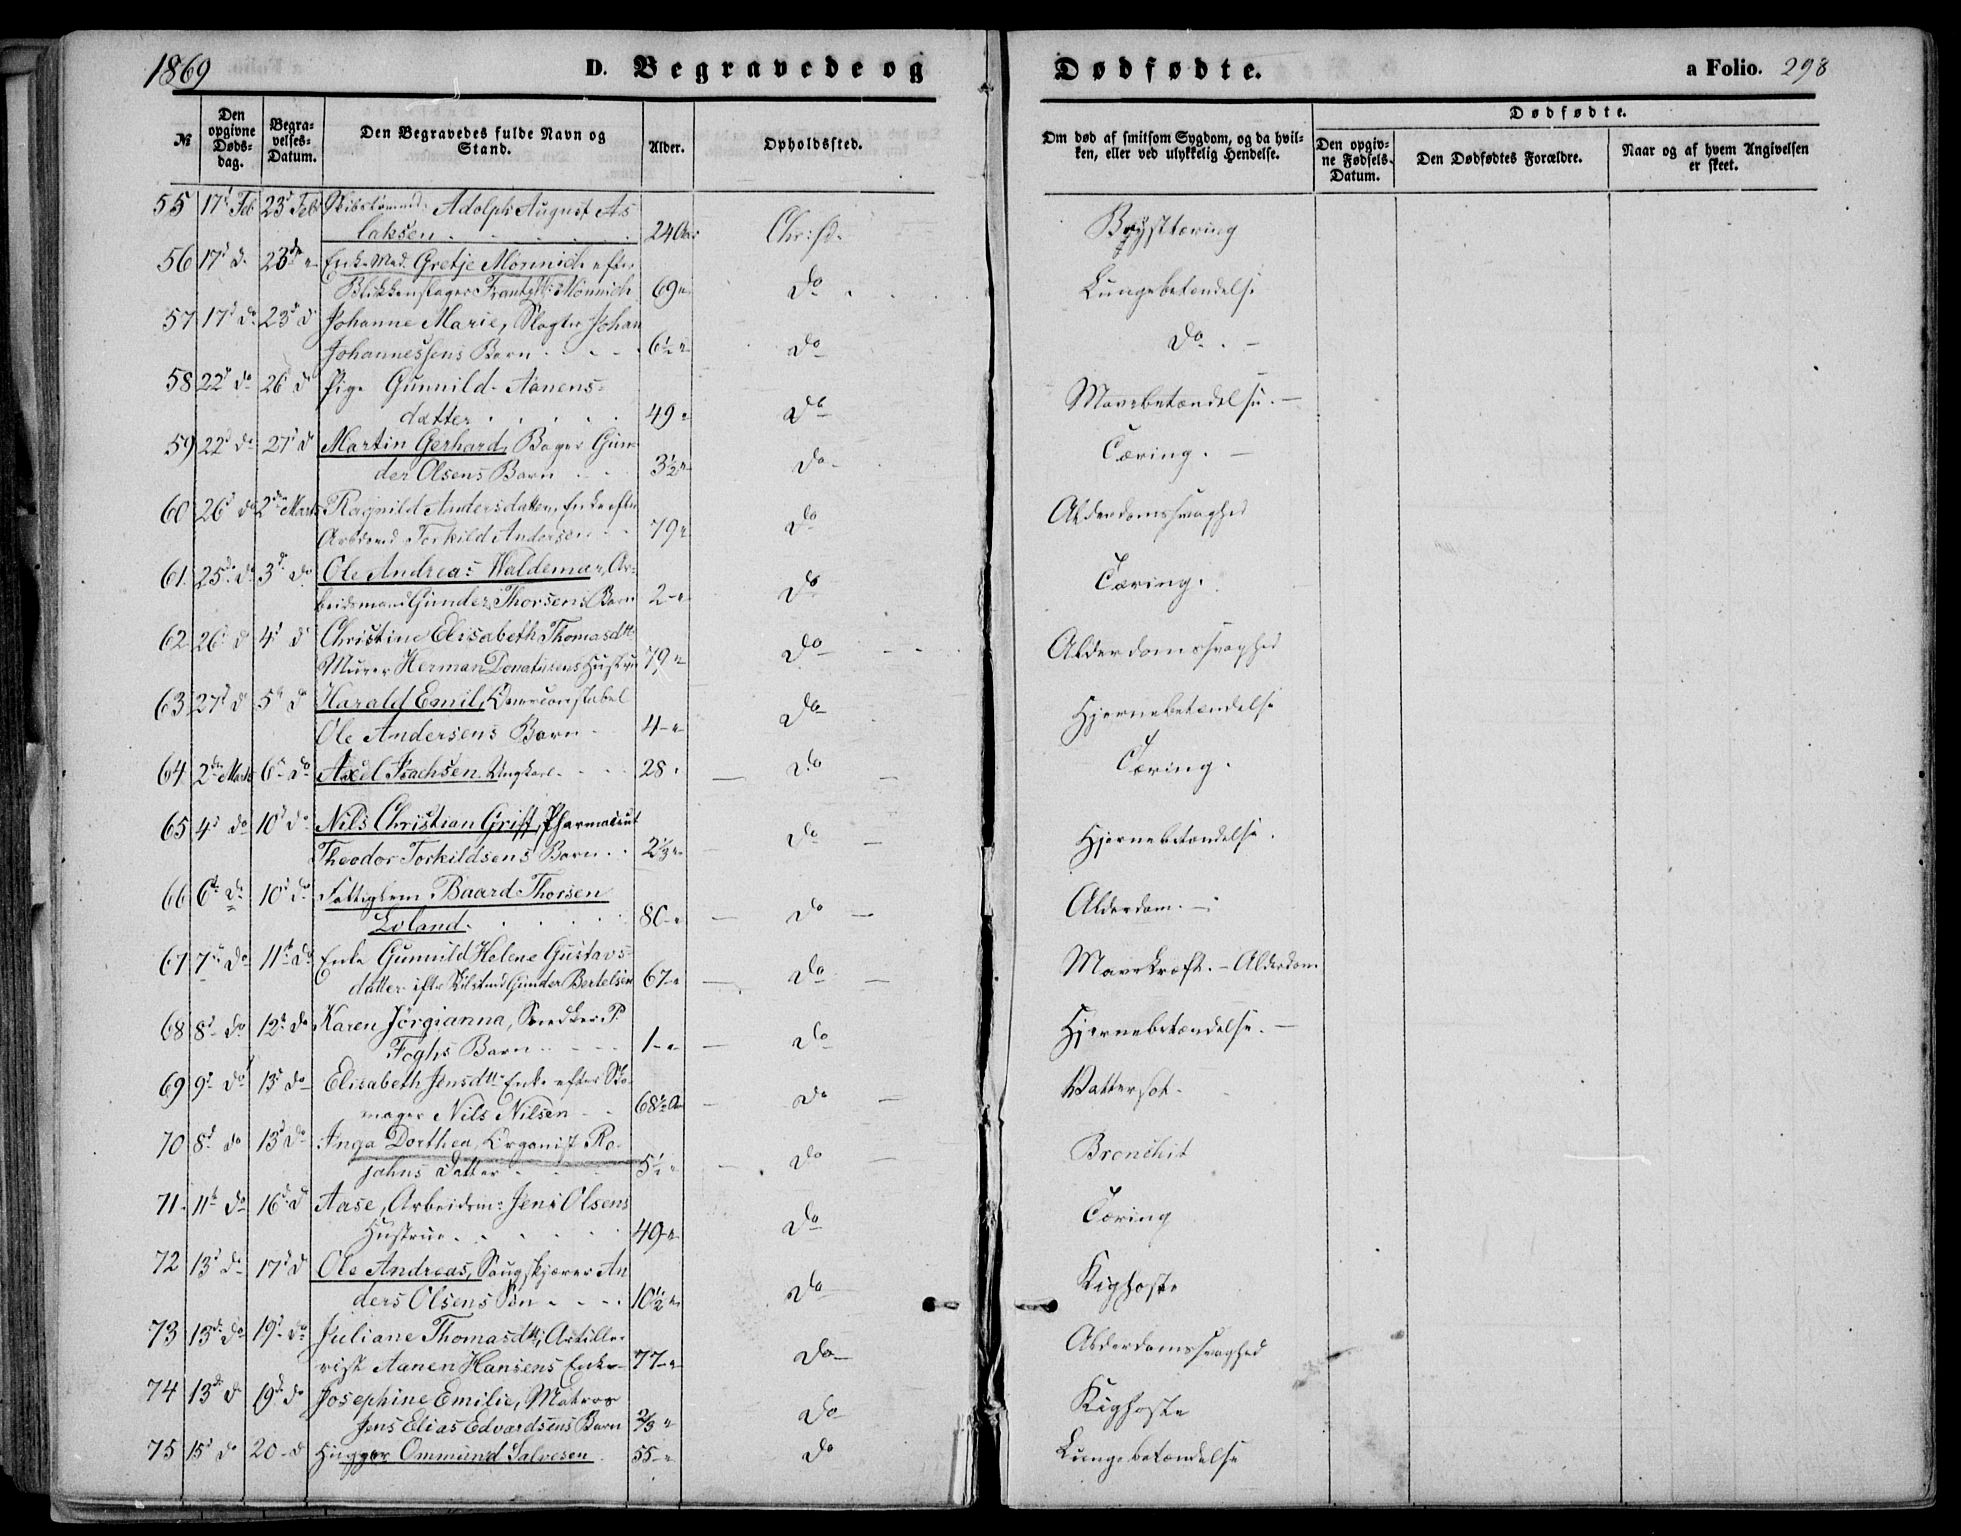 1869 D. Begravede og Dødfødte. a Folio. 298
№ Den opgivne Døds-dag. Begra-velses-Datum. Den Begravedes fulde Navn og Stand. Alder. Opholdssted. Om død af smitsom Sygdom, og da hvil-ken, eller ved ulykkelig Hendelse. Dødfødte.
Den opgiv-ne Fødsels-Datum. Den Dødfødtes Forældre. Naar og af hvem Angivelsen er skeet.
55 17d Feb 23d Feb Skibstømmd: Adolph August As-
laksen 24 Aar Chr:sd. Brysttæring
56 17d do 23de " Enke Mad. Gretje Mönnich efter
Blikkenslager Frantz Mönnich 69 " do Lungebetændelse
57 17d do 23d do Johanne Marie, Slagter Johan
Johannessens Barn 6½ " do do
58 22d do 26 do Pige Gunnild Aanens-
datter 49 " do Mavebetændelse
59 22d do 27d do Martin Gerhard, Bager Gun-
der Olsens Barn 3½ " do Tæring
60 26d do 2den Marts Ragnild Andersdatter, Enke efter
Arbdmd Torkild Andersen 79 " do Alderdomssvaghed
61 25de do 3de do Ole Andreas Waldemar, Ar-
beidsmand Gunder Thorsens Barn 2 " do Tæring
62 26 do 4d do Christine Elisabeth Thomasdtr
Murer Herman Donatusens Hustru 79 " do Alderdomssvaghed
63 27d do 5te do Harald Emil,
Ole Andersens Barn 4 " do Hjernebetændelse
64 2den Marts 6te do Axel Isachsen Ungkarl 28 " do Tæring
65 4d do 10d do Nils Christian Grift, Pharmaceut
Theodor Torkildsens Barn 2⅓ " do Hjernebetændelse
66 6te do 10d do Fattiglem Baard Thorsen
Loland 80 " do Alderdom
67 7de do 11te do Enke Gunnild Helene Gustavs-
datter efter Gunder Bertelsen 67 " do Mavekræft - Alderdom
68 8d do 12te do Karen Jörgianna, Snedker P.
Foghs Barn 1 " do Hjernebetændelse
69 9d do 13d do Elisabeth Jensdtr Enke efter Sko-
mager Nils Nilsen 68½ Aar do Vattersot
70 8d do 13d do Inga Dorthea, Organist Ro-
jahns Datter 5½ " do Bronchit
71 11te do 16d do Aase, Arbeidsm: Jens Olsens
Hustrue 49 " do Tæring
72 13d do 17d do Ole Andreas, Saugskjærer An-
ders Olsens Søn 10½ " do Kighoste
73 13de do 19d do Juliane Thomasdtr, Artille-
rist Aanen Hansens Enke 77 " do Alderdomssvaghed
74 13de do 19de do Josephine Emilie, Matros
Jens Elias Edvardsens Barn ⅔ " do Kighoste
75 15d do 20 do Hugger Ommund Salvesen 55 " do Lungebetændelse